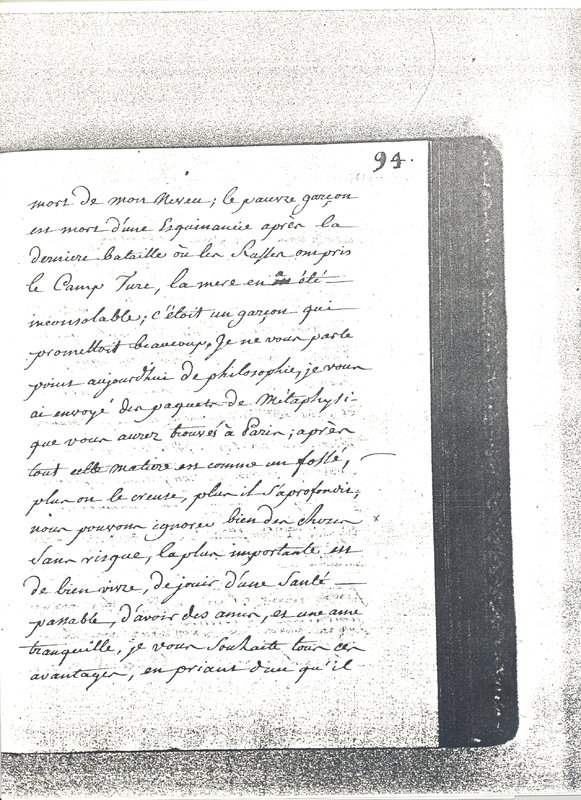 94.
mort de mon Neveu; le pauvre garçon
est mort d'une Esquinancie après la
derniere bataille où les Russes ont pris
le Camp Turc, la mere en a été
inconsolable; c'étoit un garçon qui
promettoit beaucoup. Je ne vous parle
point aujourd'hui de philosophie, je vous
ai envoyé des paquets de Métaphysi-
que vous aurez trouvés à Paris; après
tout cette matiere est comme un fossé,
plus on le creuse, plus il s'aprofondit;
nous pouvons ignorer bien des choses
sans risque, la plus importante est
de bien vivre, de jouir d'une Santé
passable, d'avoir des amis, et une ame
tranquille, je vous Souhaite tous ces
avantages, en priant dieu qu'il